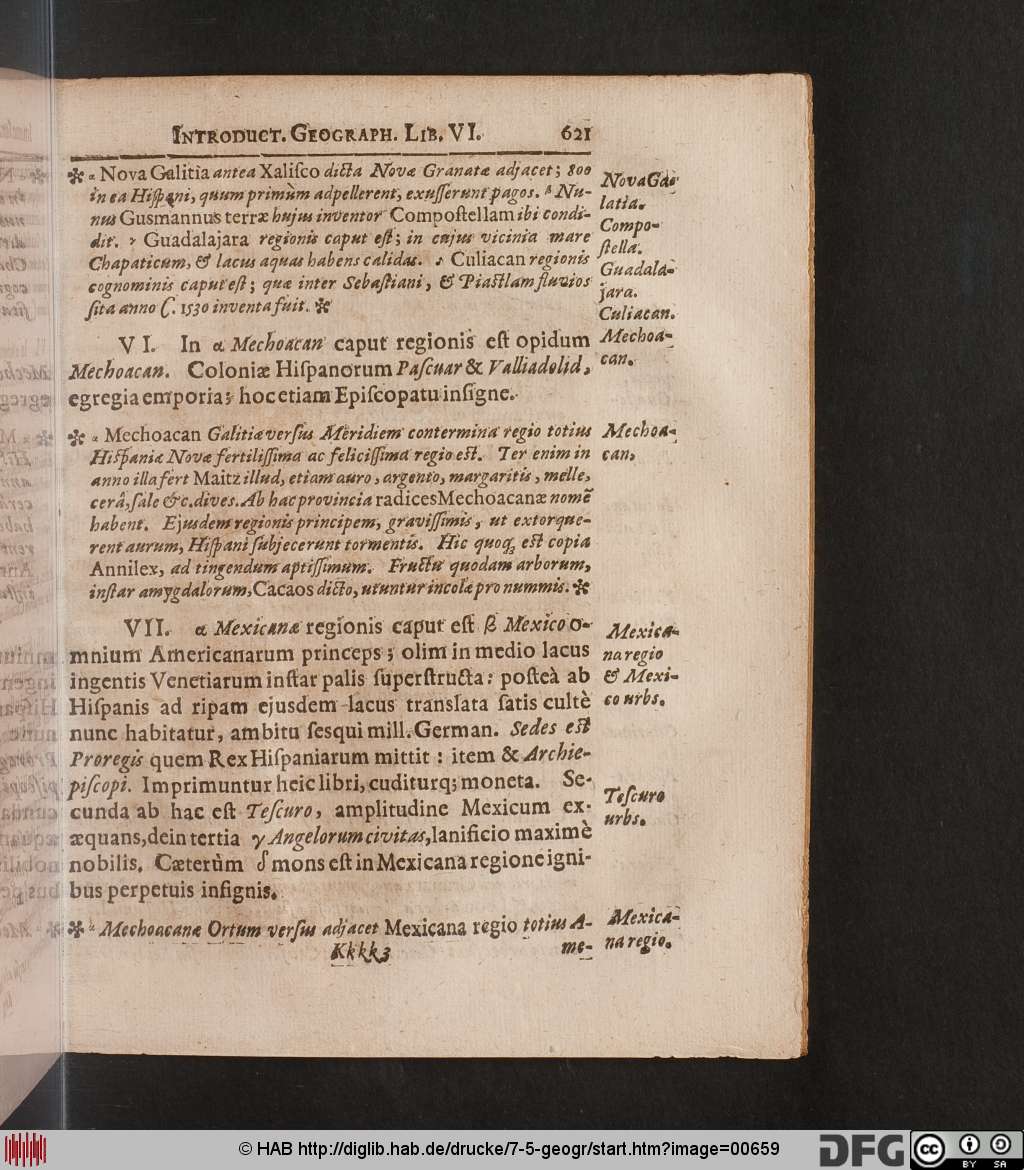 INTRODUCT. GEOGRAPH. LIB. VI. 621
✼ α Nova Galitia antea Xaliſco dicta Novæ Granatæ adjacet; 800
in ea Hiſpani, quum primùm adpellerent, exuſſerunt pagos. β Nu-
nus Gusmannus terræ hujus inventor Compoſtellam ibi condi-
dit. γ Guadalajara regionis caput eſt; in cujus vicinia mare
Chapaticum, & lacus aquas habens calidas. δ Culiacan regionis
cognominis caput eſt; quæ inter Sebaſtiani, & Piaſtlam fluvios
ſita anno C. 1530 inventa fuit. ✼
Nova Ga-
latia.
Compo-
ſtella.
Guadala-
jara.
Culiacan.
VI. In α Mechoacan caput regionis eſt opidum
Mechoacan. Coloniæ Hiſpanorum Paſcuar & Valliadolid,
egregia emporia; hoc etiam Epiſcopatu inſigne.
Mechoa-
can.
✼ α Mechoacan Galitiæ verſus Meridiem contermina regio totius
Hiſpaniæ Novæ fertiliſſima ac feliciſſima regio eſt. Ter enim in
anno illa fert Maitz illud, etiam auro, argento, margaritis, melle,
cerâ, ſale &c. dives. Ab hac provincia radices Mechoacanæ nomẽ
habent. Ejusdem regionis principem, graviſſimis, ut extorque-
rent aurum, Hiſpani ſubjecerunt tormentis. Hic quoq; eſt copia
Annilex, ad tingendum aptiſſimum. Fructu quodam arborum,
inſtar amygdalorum, Cacaos dicto, utuntur incolæ pro nummis. ✼
Mechoa-
can,
VII. α Mexicanæ regionis caput eſt β Mexico o-
mnium Americanarum princeps; olim in medio lacus
ingentis Venetiarum inſtar palis ſuperſtructa: poſteà ab
Hiſpanis ad ripam ejusdem lacus translata ſatis cultè
nunc habitatur, ambitu ſesqui mill. German. Sedes eſt
Proregis quem Rex Hiſpaniarum mittit: item & Archie-
piſcopi. Imprimuntur heic libri, cuditurq; moneta. Se-
cunda ab hac eſt Teſcuro, amplitudine Mexicum ex-
æquans, dein tertia γ Angelorum civitas, lanificio maximè
nobilis. Cæterùm δ mons eſt in Mexicana regione igni-
bus perpetuis inſignis.
Mexica-
na regio
& Mexi-
co urbs.
Teſcuro
urbs.
✼ α Mechoacanæ Ortum verſus adjacet Mexicana regio totius A-
Kkkk3 me-
Mexica-
na regio.
© HAB http://diglib.hab.de/drucke/7-5-geogr/start.htm?image=00659
DFG
CC BY SA